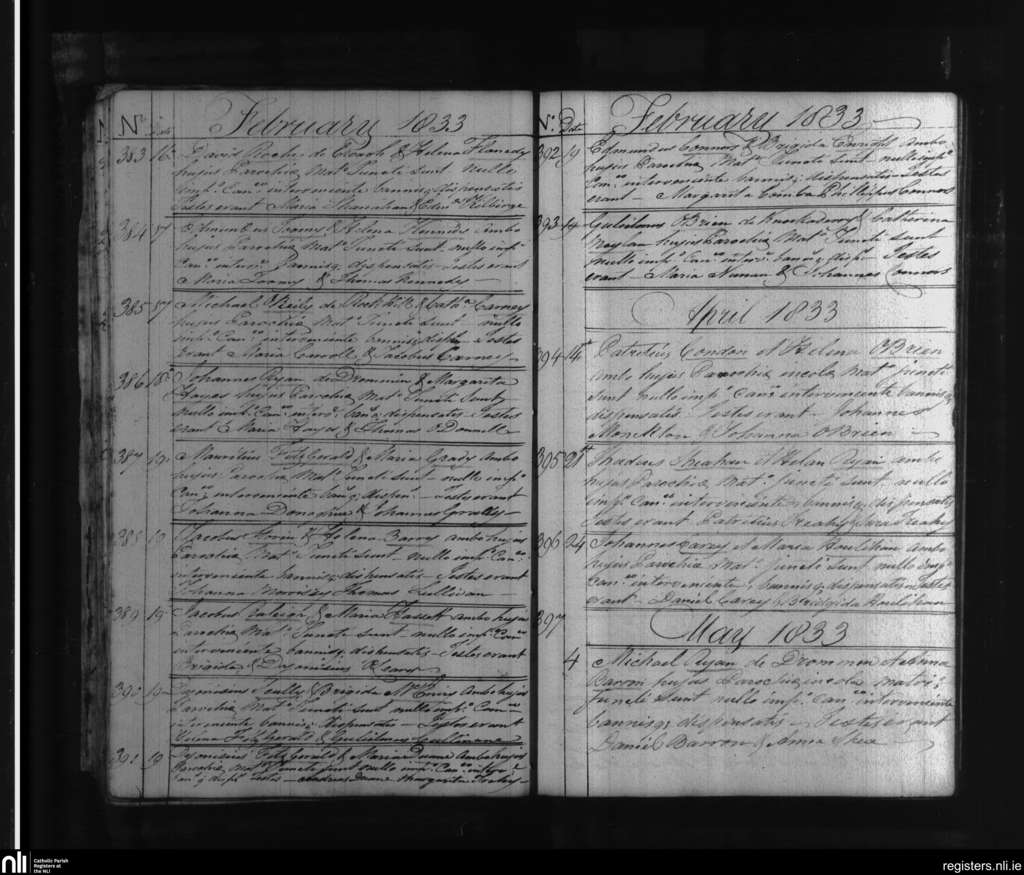 No. Date February 1833
383 16 David Roche de & Helena Flanedy
hujus Parochia Mat. Juncti Sunt nullo
imp. Can. interveniente bannis dispensatis
Testes erant Maria & Edm. Kilbirge
384 17 & Helena Kennedy ambo
hujus Parochia Mat. Juncti Sunt nullo imp.
Can. interv. Bannisq. dispensatis Testes erant
Maria & Thomas Kennedy
385 17 Michael Reily de & Cath. Carney
hujus Parochia Mat. Juncti Sunt nullo
imp. Can. interveniente bannis Testes
erant Maria Carroll & Jacobus Carney
386 18 Johannes Ryan de Drommin & Margarita
Hayes hujus Parochia Mat. Juncti Sunt
nullo imp. Can. interv. ban. dispensatis Testes
erant Maria Hayes & Thomas O Donnell
387 19 Mauritius FitzGerald & Maria Grady ambo
hujus Parochia Mat. Juncti Sunt nullo imp.
Can. interveniente ban. dispen. Testes erant
Johanna Donoghue & Johannes
388 19 Jacobus & Helena Barry ambo hujus
Parochia Mat. Juncti Sunt nullo imp. Can.
interveniente bannisq. dispensatis Testes erant
Johanna Thomas Sullivan
389 19 Jacobus & Maria Hassett ambo hujus
Parochia Mat. Juncti Sunt nullo imp. Can.
interveniente bannisq. dispensatis Testes erant
Brigida & Dyonisius O Leary
390 19 Dyonisius Scully & Brigida Ambo hujus
Parochia Mat. Juncti Sunt nullo imp. Can.
interveniente bannis dispensatis Testes erant
Fitzgerald & Gulielmus Cullinane
391 19 Dyonisius Fitzgerald & Maria Duane Ambo hujus
Parochia Mat. Juncti Sunt nullo imp. Can. interv.
Testes Duane Margarita
No. Date February 1833
392 19 Edmundus Connors & Brigida Enright Ambo
hujus Parochia Mat. Juncti Sunt nullo imp.
Can. interveniente bannisq. dispensatis Testes
erant Margarita & Philippus Connors
393 19 Gulielmus OBrien de & Catherina
hujus Parochia Mat. Juncti Sunt
nullo imp. Can. interv. banisq. disp. Testes
erant Maria Nunan & Johannes Connors
April 1833
394 14 Patritius Condon et Helena OBrien
ambo hujus Parochia incola Mat. Juncti
Sunt nullo imp. Can. interveniente bannisq.
dispensatis. Testes erant Johannes
Monckton & Johanna OBrien
395 21 Thadeus Sheahan et Helan Ryan ambo
hujus Parochia Mat. Juncti Sunt nullo
imp. Can. interveniente bannisq. dispensatis
Testes erant Patritius Treahy & Sara Treahy
396 24 Johannes Carey et Maria Houlihan ambo
hujus Parochia Mat. Juncti Sunt nullo imp.
Can. interveniente bannisq. dispensatis Testes
erant Daniel Carey & Brigida Houlihan
397 May 1833
4 Michael Ryan de Drommin et Anna
Barron hujus Parochia incola matri.
Juncti Sunt nullo imp. Can. interveniente
bannisq. dispensatis Testes erant
Daniel Barron & Anna Shea
nli Catholic Parish
Registers at
the NLI
registers.nli.ie